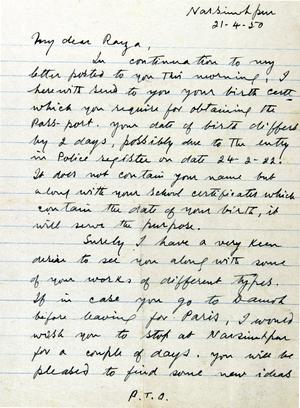 Narsimhpur
21-4-50
My dear Raza,
In continuation to my
letter posted to you this morning, I
herewith send to you your birth certi
which you require for obtaining the
Pass-port. your date of birth differs
by 2 days, possibly due to the entry
in Police register on date 24-2-22.
It does not contain your name but
along with your school certificates which
contain the date of your birth, it
will serve the purpose.
Surely I have a very keen
desire to see you along with some
of your works of different types.
If in case you go to Damoh
before leaving for Paris, I would
wish you to stop at Narsimhpur
for a couple of days. you will be
pleased to find some new ideas
P.T.O.